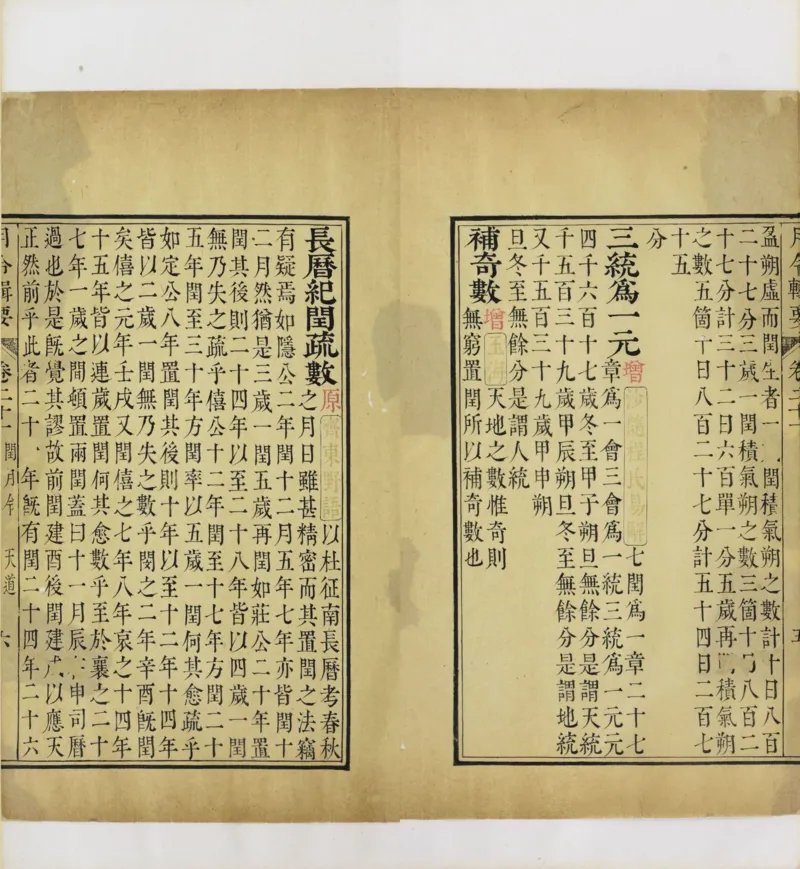 月令輯要 卷二十一 五
盈朔虛而閏生者一 閏積氣朔之數計十日八百
二十七分三歲一閏積氣朔之數三箇十日八百二
十七分計三十二日六百單一分五歲再閏積氣朔
之數五箇十日八百二十七分計五十四日二百七
十五
分
三統為一元 增 七閏為一章二十七
章為一會三會為一統三統為一元元
四千六百十七歲冬至甲子朔旦無餘分是謂天統
千五百三十九歲甲辰朔旦冬至無餘分是謂地統
又千五百三十九歲甲申朔
旦冬至無餘分是謂人統
補奇數 增 天地之數惟奇則
無窮置閏所以補奇數也
長曆紀閏疏數 原 齊東野語 以杜征南長曆考春秋
之月日雖甚精密而其置閏之法竊
有疑焉如隱公二年閏十二月五年七年亦皆閏十
二月然猶是三歲一閏五歲再閏如莊公二十年置
閏其後則二十四年以至二十八年皆以四歲一閏
無乃失之疏乎僖公十二年閏至十七年方閏二十
五年閏至三十年方閏率以五歲一閏何其愈疏乎
如定公八年置閏其後則十年以至十二年十四年
皆以二歲一閏無乃失之數乎閔之二年辛酉既閏
矣僖之元年壬戌又閏僖之七年八年哀之十四年
十五年皆以連歲置閏何其愈數乎至於襄之二十
七年一歲之間頓置兩閏蓋曰十一月辰 申司曆
過也於是既覺其謬故前閏建酉後閏建戌以應天
正然前乎此者二十 年既有閏二十四年二十六
月令輯要 卷二十一 閏月年 天道 六